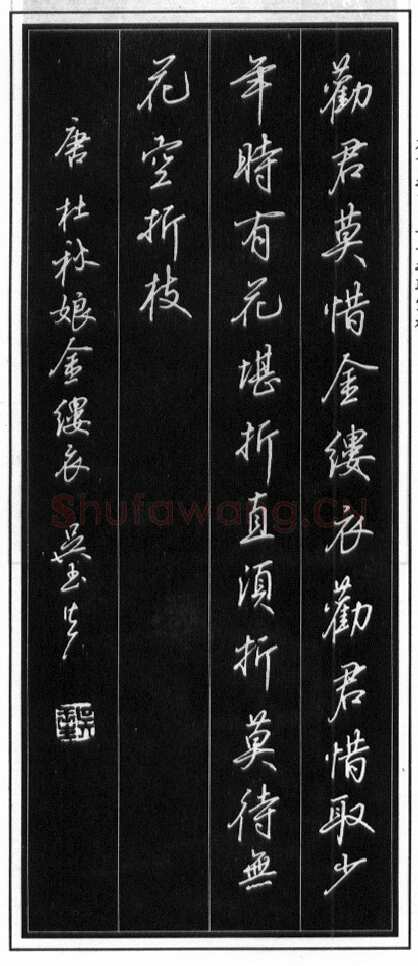 勸君莫惜金縷衣勸君惜取少
年時有花堪折直須折莫待無
花空折枝
唐杜秋娘金縷衣 吳玉生
Shufawang.cn